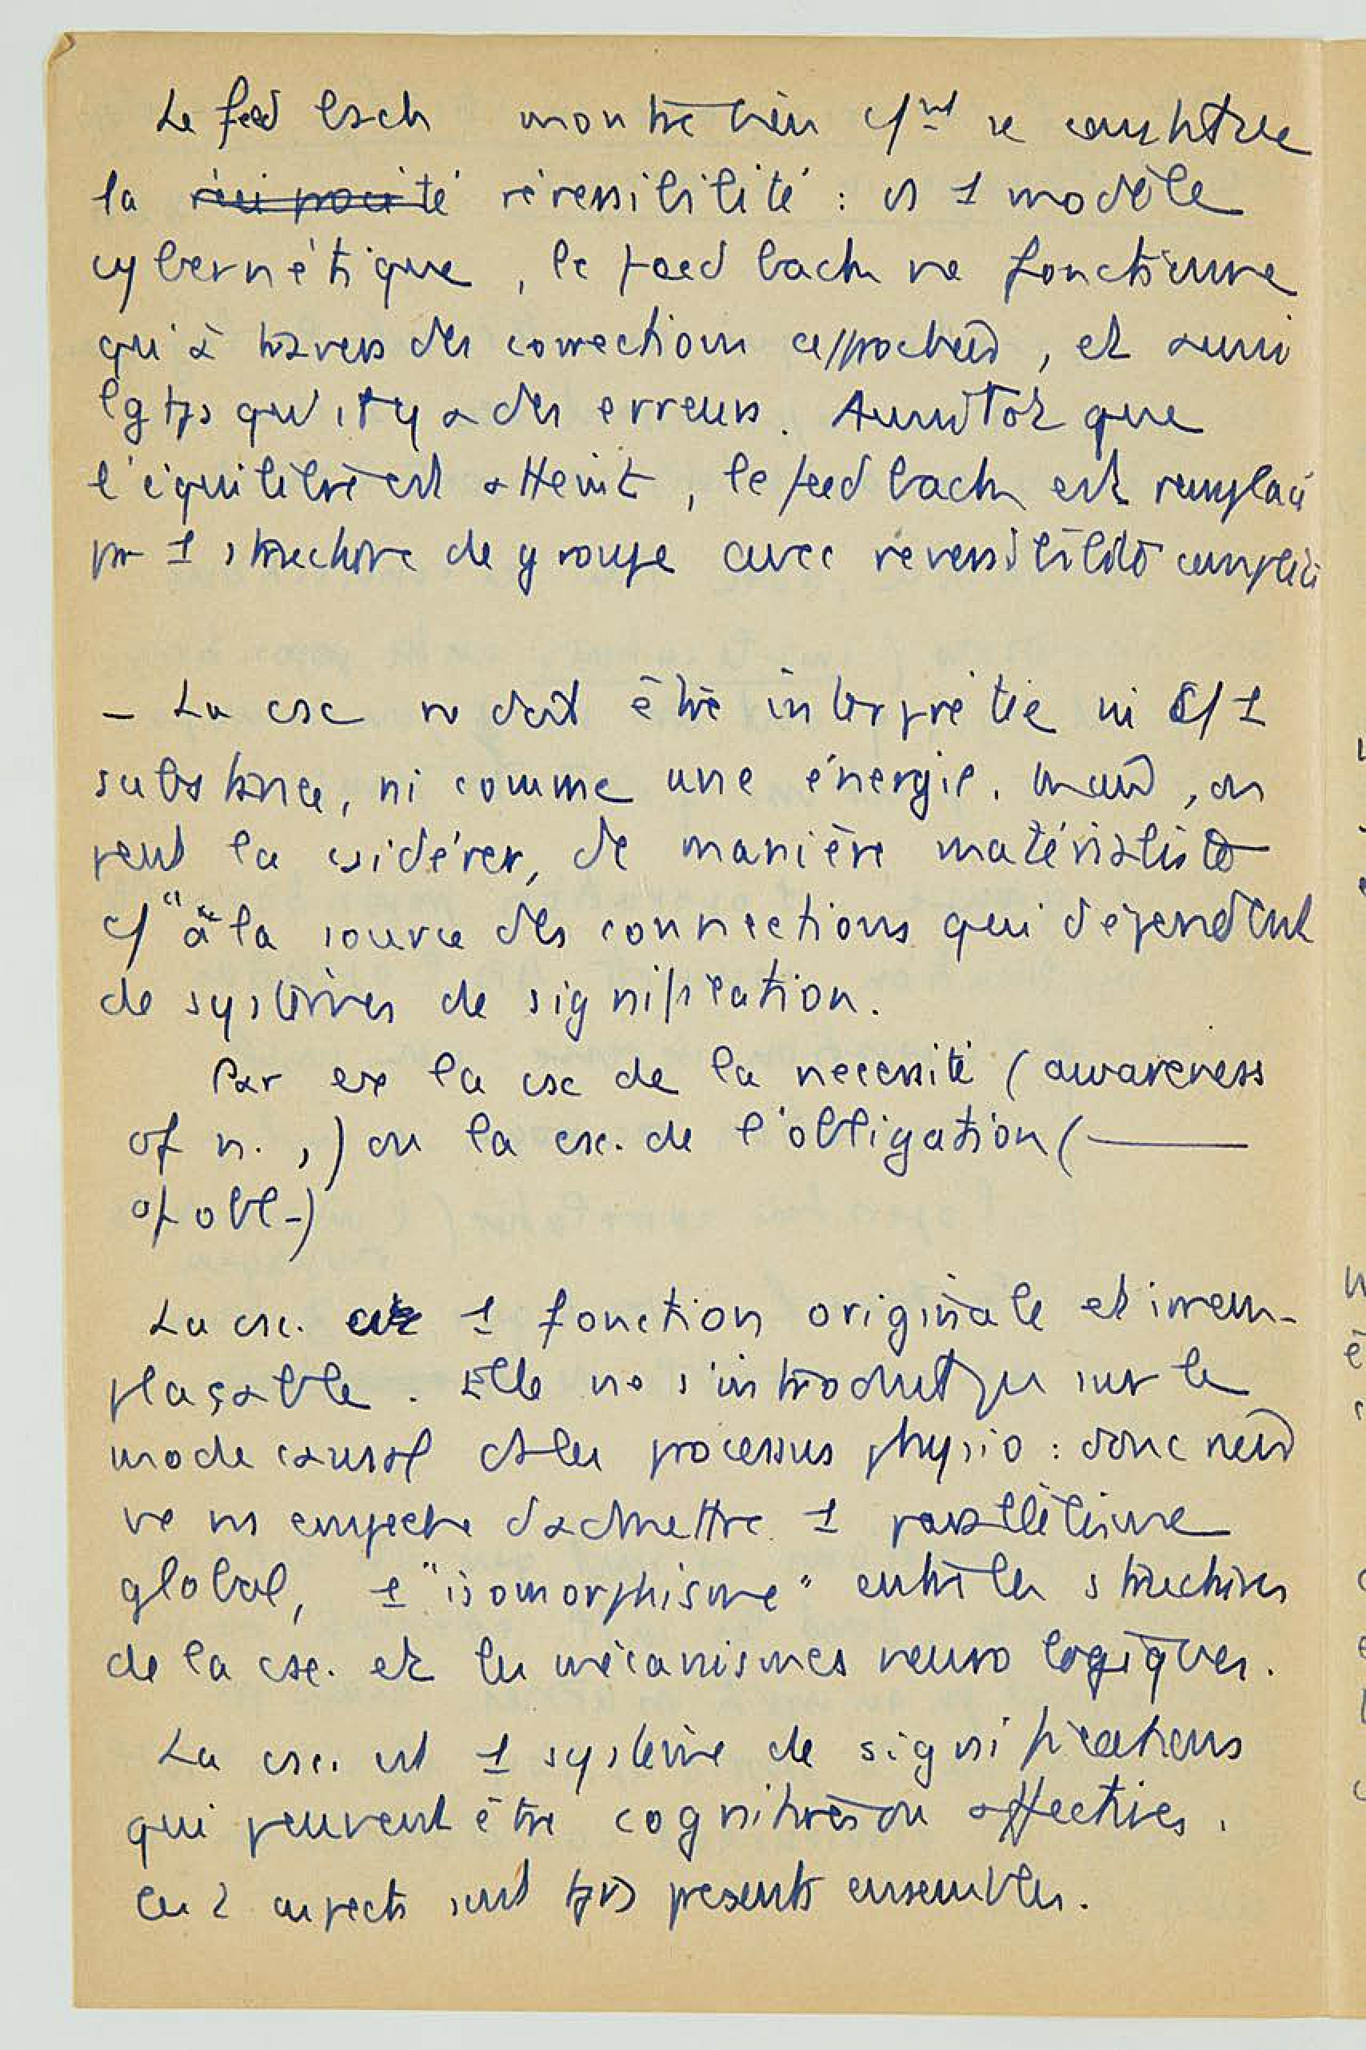 Le feed back montre bien c/nt se construe
la réciprocité réversibilité : ds 1 modèle
cybernétique, le feed back ne fonctionne
qu'à travers des corrections approchées, et aussi
lgtps qu'il y a des erreurs. Aussitôt que
l'équilibre est atteint, le feed back est remplacé
par 1 structure de groupe avec réversibilité complète
– La csc ne doit être interprétée ni c/ 1
substance, ni comme une énergie. Mais, on
peut la csidérer, de manière matérialiste
c/ "à la source des connections qui dépendent
de systèmes de signification.
Par ex la csc de la nécessité (awareness
of n.,) ou la csc. de l'obligation (———
of obl-)
La csc. est 1 fonction originale et irrem-
plaçable. Elle ne s'introduit pas sur le
mode causal ds les processus physio : donc rien
ne ns empeche d'admettre 1 parallélisme
global, 1 "isomorphisme" entre les structures
de la csc. et les mécanismes neuro logiques.
La csc. est 1 système de significations
qui peuvent être cognitives ou affectives.
Ces 2 aspects sont tjrs presents ensembles.